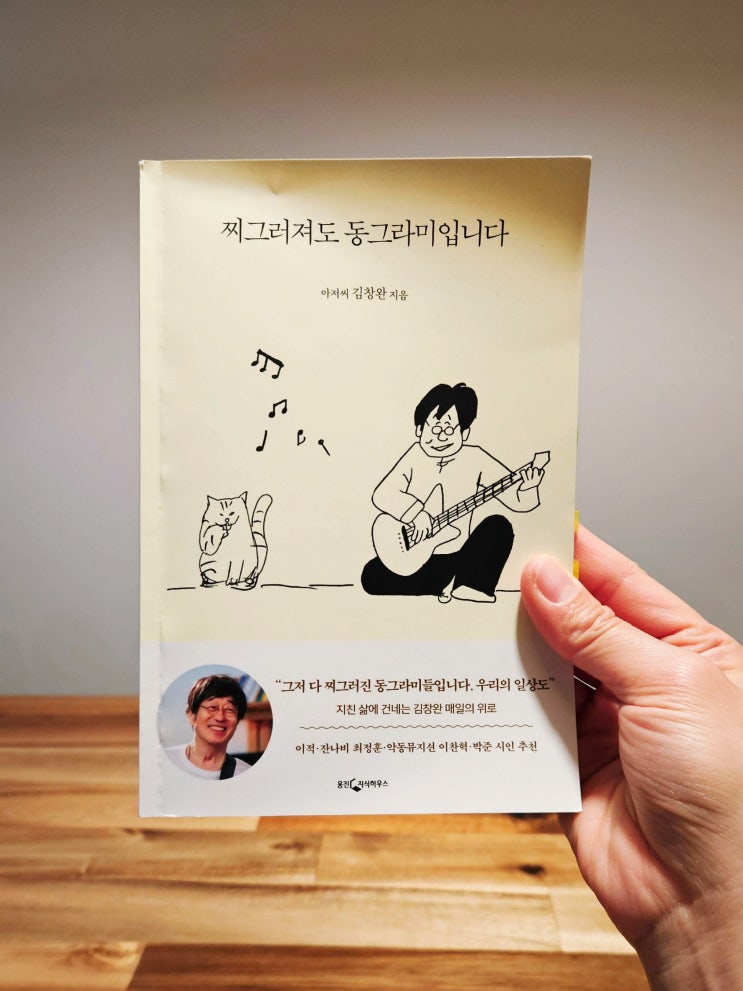 찌그러져도 동그라미입니다
아저씨 김창완 지음
“그저 다 찌그러진 동그라미들입니다. 우리의 일상도”
지친 삶에 건네는 김창완 매일의 위로
이적·잔나비 최정훈·악동뮤지션 이찬혁·박준 시인 추천
웅진 지식하우스